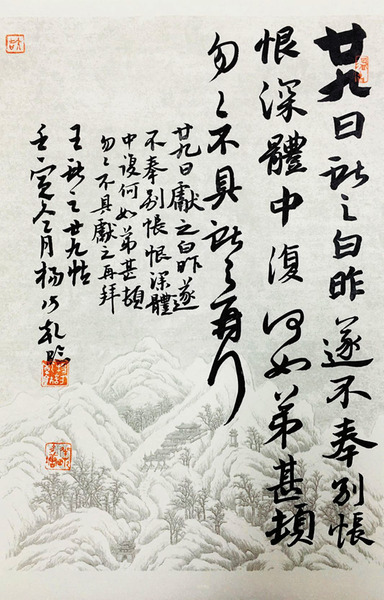 廿九日獻之白昨遂不奉別悵
恨深體中復何如弟甚頓
勿々不具獻之再拜
廿九日獻之白昨遂
不奉別悵恨深體
中復何如弟甚頓
勿々不具獻之再拜
王獻之廿九帖
壬寅冬月楊臨